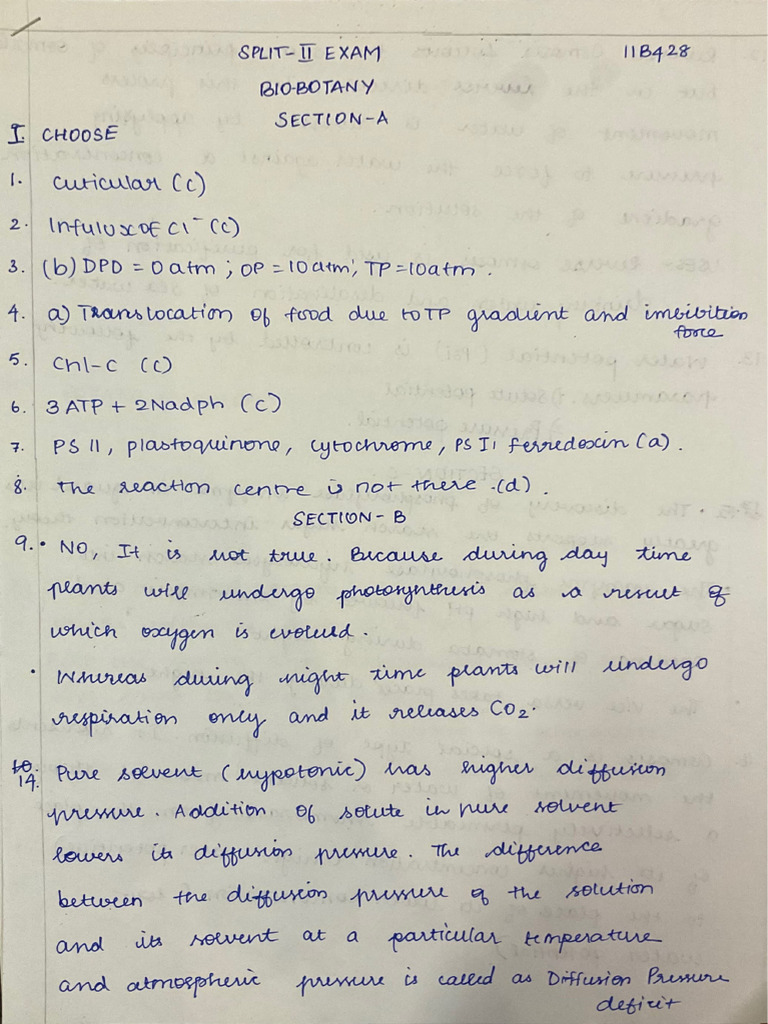 SPLIT-II EXAM 11B428
BIO-BOTANY
SECTION-A
I. CHOOSE
1. Cuticular (c)
2. Infulux OF Cl⁻ (c)
3. (b) DPD = 0 atm ; OP = 10 atm; TP = 10 atm.
4. a) Translocation of food due to TP gradient and imbibition
force
5. Chl-C (c)
6. 3 ATP + 2 Nadph (c)
7. PS II, plastoquinone, cytochrome, PS I, ferredoxin (a).
8. The reaction centre is not there .(d).
SECTION-B
9. • NO, It is not true. Because during day time
plants will undergo photosynthesis as a result of
which oxygen is evolved.
• Whereas during night time plants will undergo
respiration only and it releases CO₂.
10.
14. Pure solvent (hypotonic) has higher diffusion
pressure. Addition of solute in pure solvent
lowers its diffusion pressure. The difference
between the diffusion pressure of the solution
and its solvent at a particular temperature
and atmospheric pressure is called as Diffusion Pressure
deficit